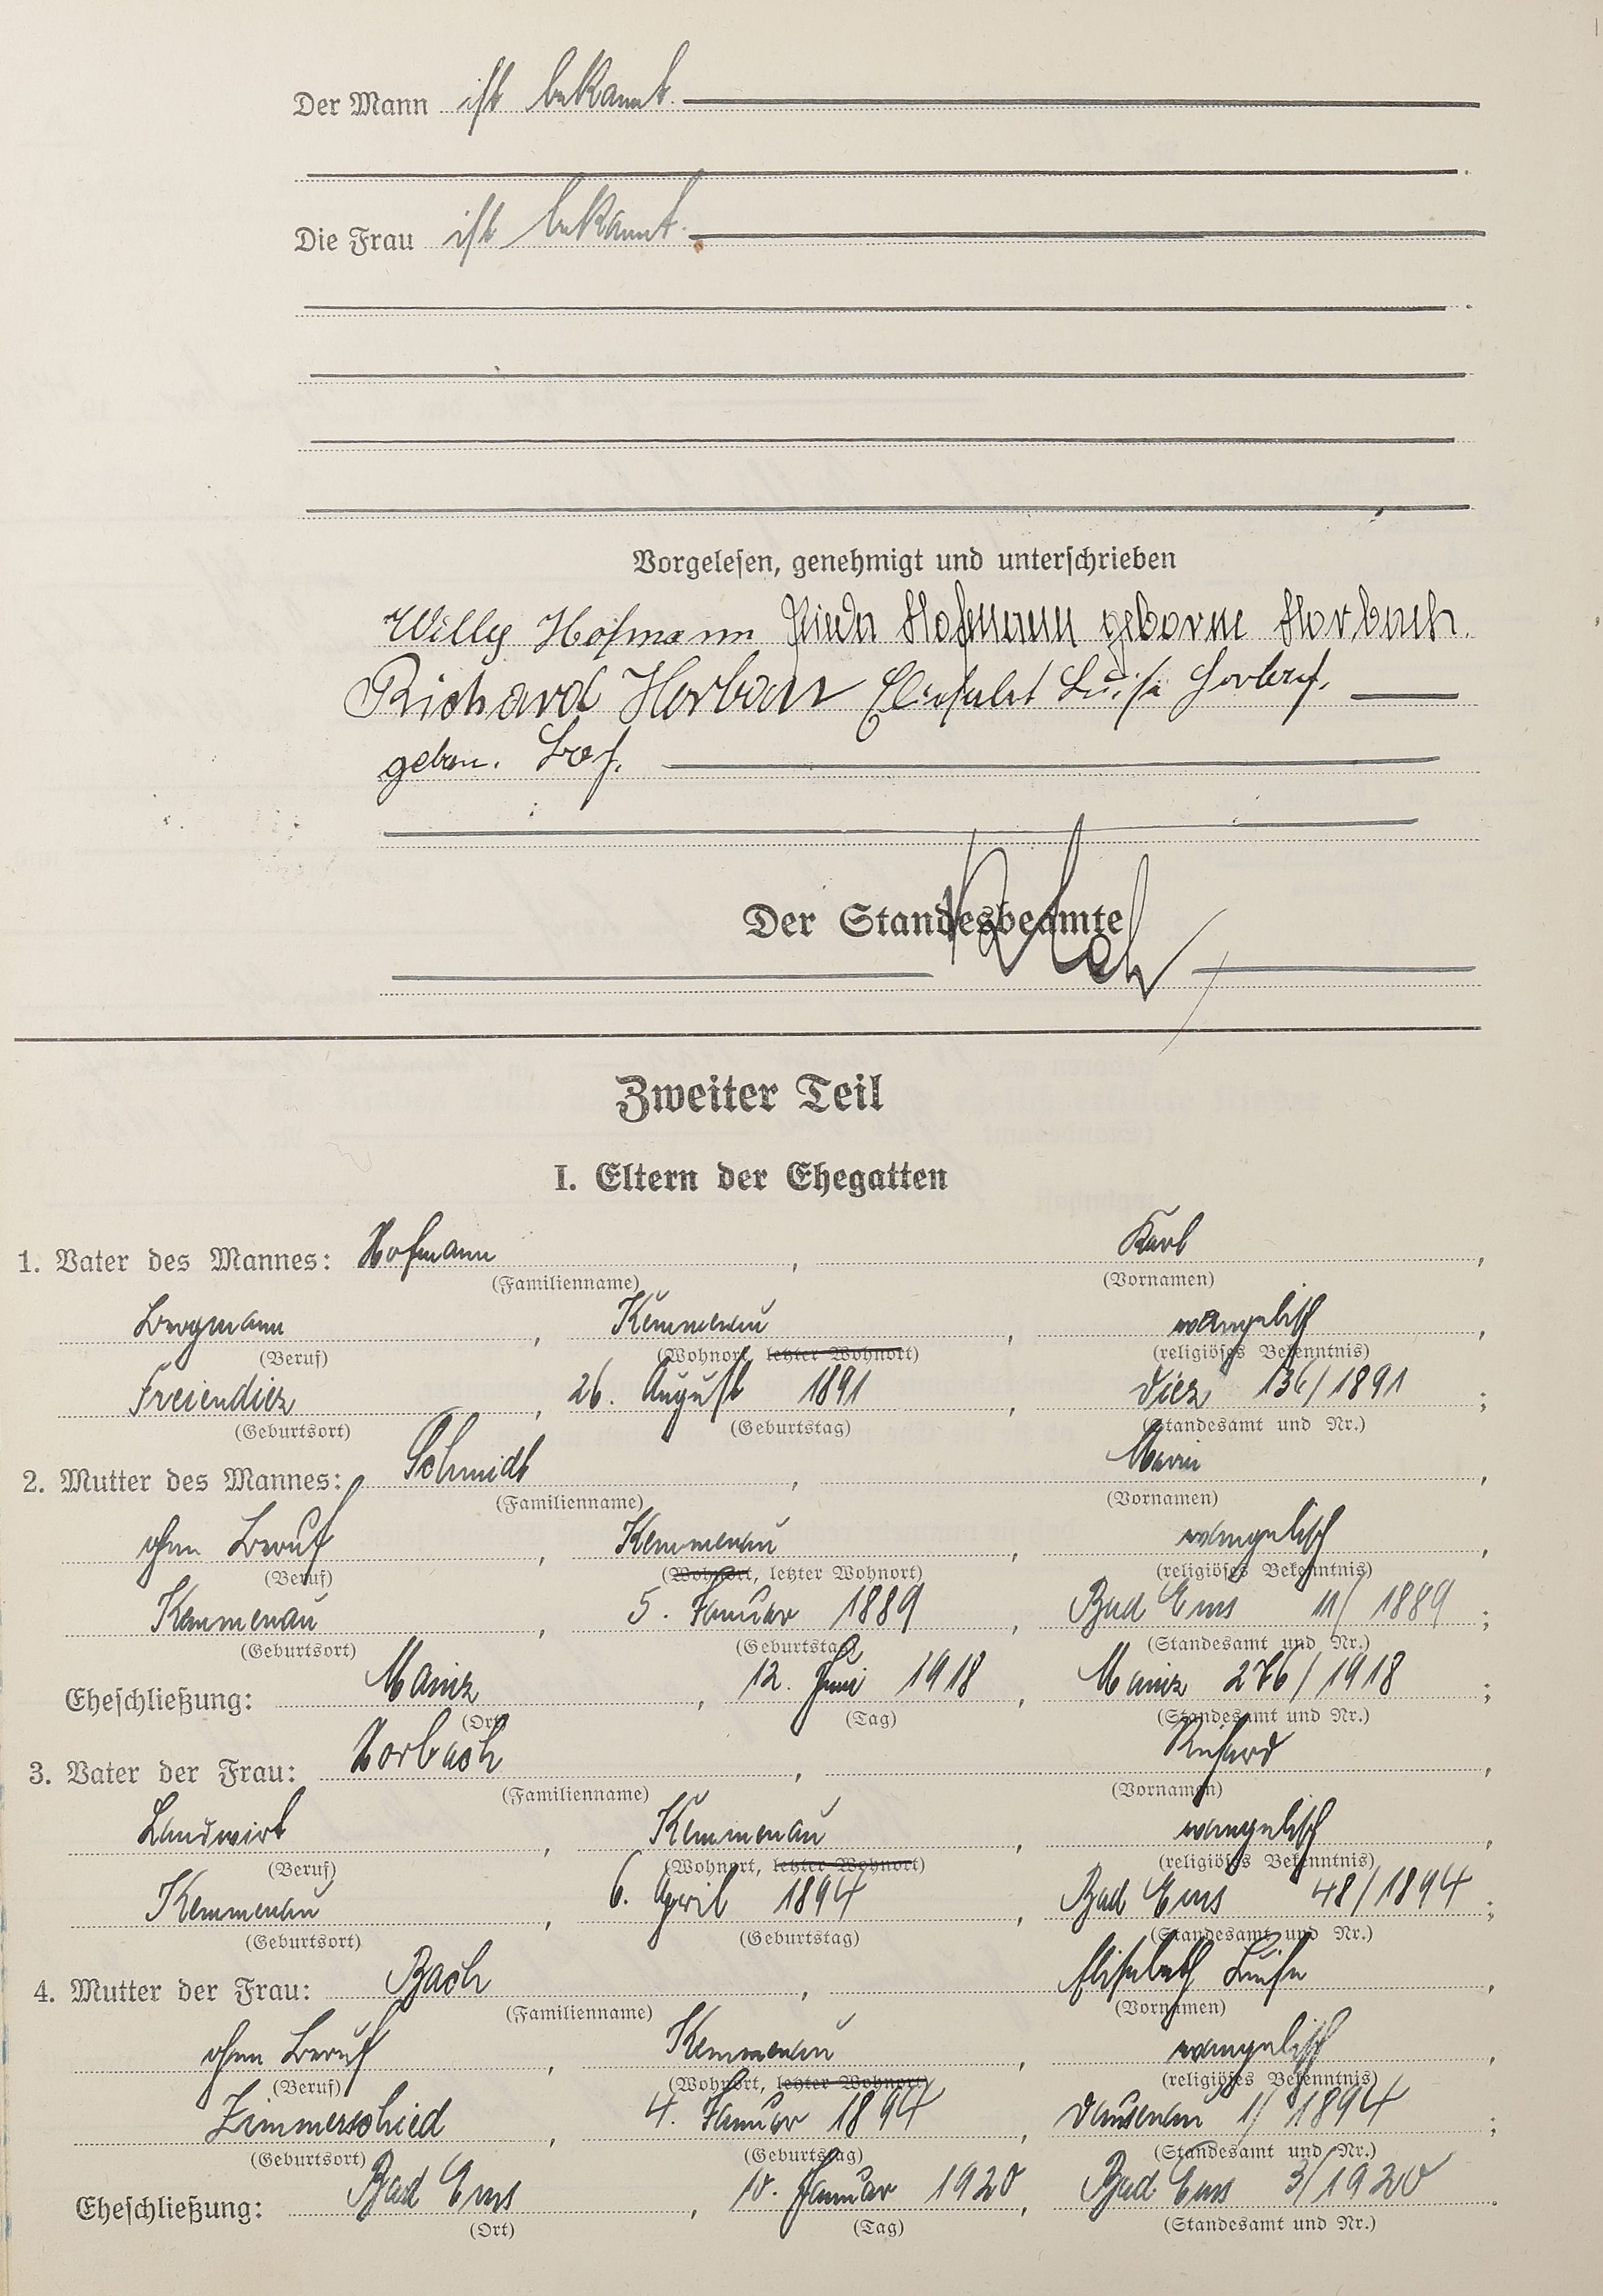 Der Mann ist bekannt.
Die Frau ist bekannt.
Vorgelesen, genehmigt und unterschrieben
Willy Hofmann Frieda Hofmann geborne Horbach.
Richard Horbach Elisabet Luise Horbach,
geborn. Bach.
Der Standesbeamte
Zweiter Teil
I. Eltern der Ehegatten
1. Vater des Mannes: Hofmann, Karl,
(Familienname) (Vornamen)
Bergmann, Kemmenau, evangelisch,
(Beruf) (Wohnort, letzter Wohnort) (religiöses Bekenntnis)
Freiendiez, 26. August 1891, Diez 136/1891;
(Geburtsort) (Geburtstag) (Standesamt und Nr.)
2. Mutter des Mannes: Schmidt, Marie,
(Familienname) (Vornamen)
ohne Beruf, Kemmenau, evangelisch,
(Beruf) (Wohnort, letzter Wohnort) (religiöses Bekenntnis)
Kemmenau, 5. Januar 1889, Bad Ems 11/1889;
(Geburtsort) (Geburtstag) (Standesamt und Nr.)
Eheschließung: Mainz, 12. Juni 1918, Mainz 276/1918;
(Ort) (Tag) (Standesamt und Nr.)
3. Vater der Frau: Horbach, Richard,
(Familienname) (Vornamen)
Landwirt, Kemmenau, evangelisch,
(Beruf) (Wohnort, letzter Wohnort) (religiöses Bekenntnis)
Kemmenau, 6. April 1894, Bad Ems 48/1894;
(Geburtsort) (Geburtstag) (Standesamt und Nr.)
4. Mutter der Frau: Bach, Elisabeth Luise,
(Familienname) (Vornamen)
ohne Beruf, Kemmenau, evangelisch,
(Beruf) (Wohnort, letzter Wohnort) (religiöses Bekenntnis)
Zimmerschied, 4. Januar 1894, Dausenau 1/1894;
(Geburtsort) (Geburtstag) (Standesamt und Nr.)
Eheschließung: Bad Ems, 10. Januar 1920, Bad Ems 3/1920.
(Ort) (Tag) (Standesamt und Nr.)